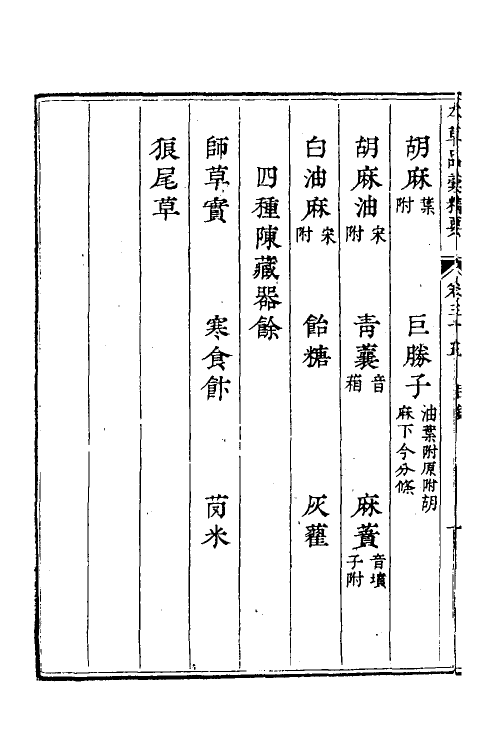 本草品彙精要 卷三十五 目錄
胡麻葉附 巨勝子油葉附原附胡麻下今分條
胡麻油宋附 青蘘音箱 麻蕡音墳子附
白油麻宋附 飴糖 灰藋
四種陳藏器餘
師草實 寒食飰 䒦米
狼尾草